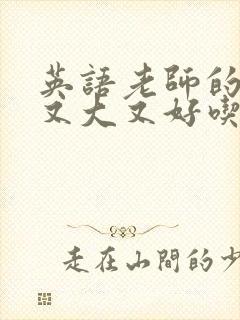 英語老師的
又大又好喫
走在山間的少